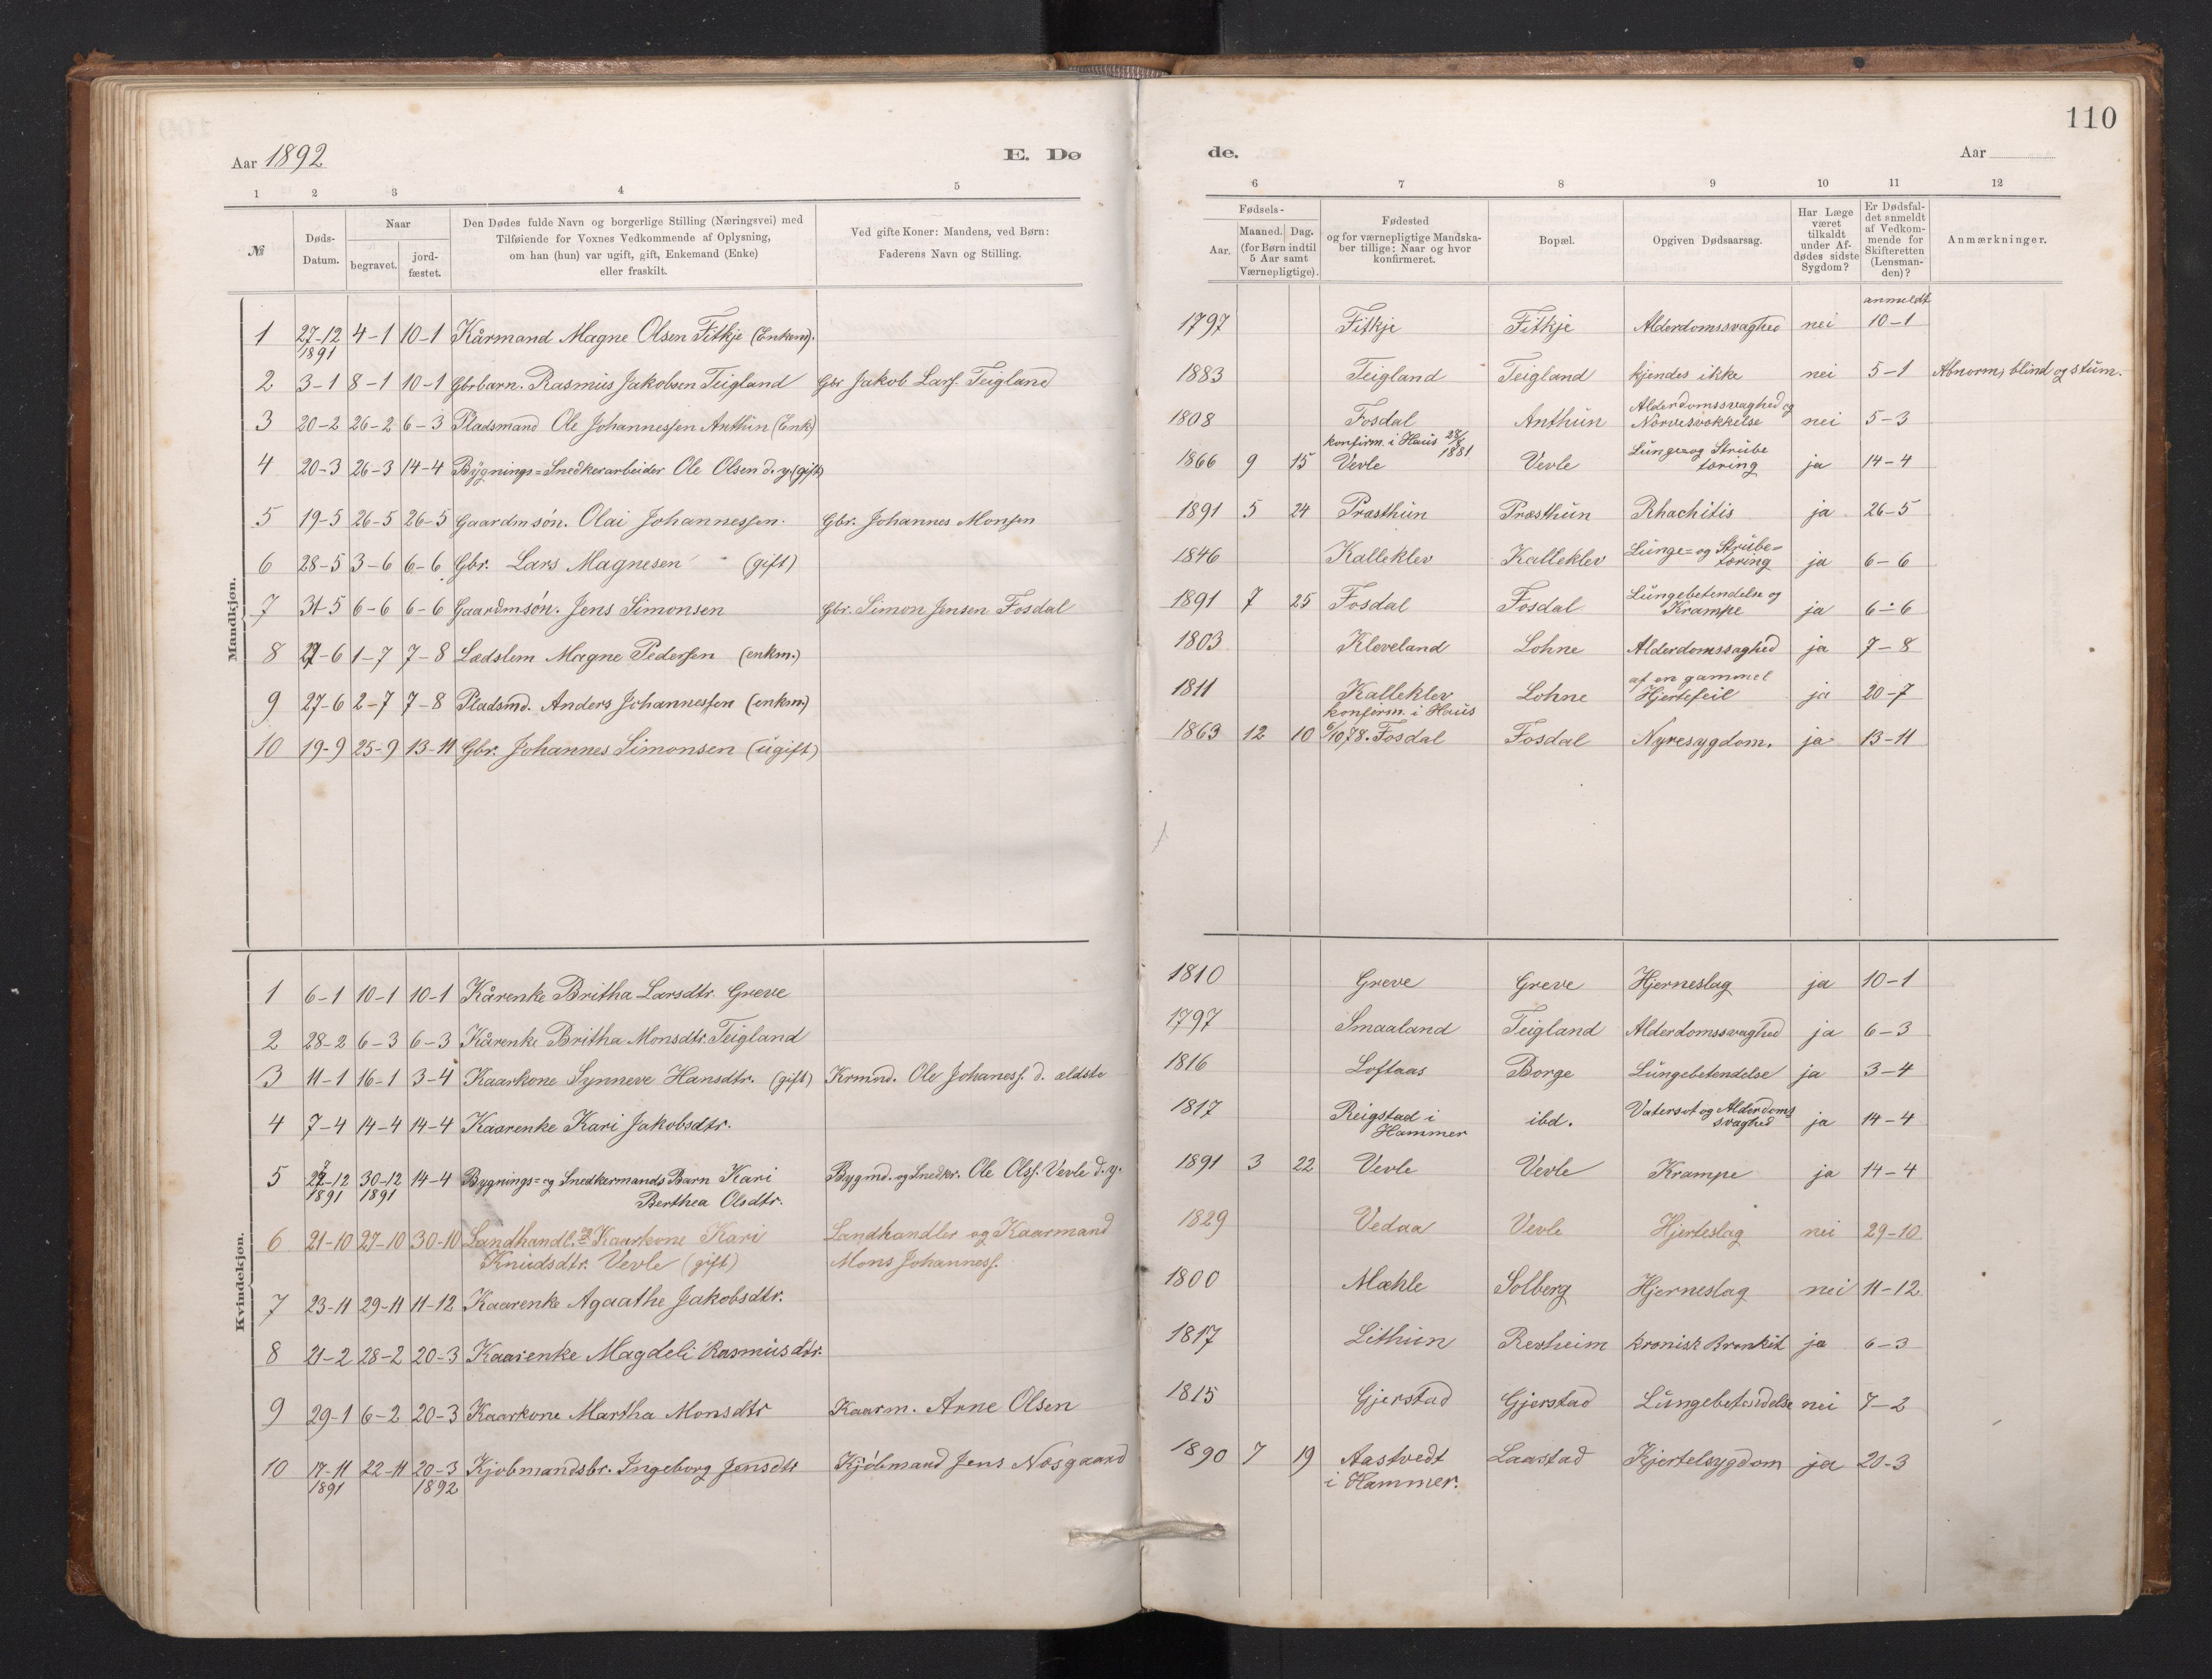 110
Aar 1892
E. Dø
de.
Aar
1 2 3 4 5
6 7 8 9 10 11 12
№
Døds-
Datum.
Naar
begravet.
jord-
fæstet.
Den Dødes fulde Navn og borgerlige Stilling (Næringsvei) med
Tilføiende for Voxnes Vedkommende af Oplysning,
om han (hun) var ugift, gift, Enkemand (Enke)
eller fraskilt.
Ved gifte Koner: Mandens, ved Børn:
Faderens Navn og Stilling.
Fødsels-
Aar.
Maaned. Dag.
(for Børn indtil
5 Aar samt
Værnepligtige).
Fødested
og for værnepligtige Mandska-
ber tillige: Naar og hvor
konfirmeret.
Bopæl.
Opgiven Dødsaarsag.
Har Læge
været
tilkaldt
under Af-
dødes sidste
Sygdom?
Er Dødsfal-
det anmeldt
af Vedkom-
mende for
Skifteretten
(Lensman-
den)?
Anmærkninger.
Mandkjøn.
anmeldt
1 27-12 4-1 10-1 Kårmand Magne Olsen Fitkje (Enkem). 1797 Fitkje Fitkje Alderdomssvaghed nei 10-1
1891
2 3-1 8-1 10-1 Gbrbarn. Rasmus Jakobsen Teigland Gbr Jakob Larss. Teigland 1883 Teigland Teigland kjendes ikke nei 5-1 Abnorm, blind og stum.
3 20-2 26-2 6-3 Pladsmand Ole Johannessen Anthun (Enk) 1808 Fosdal Anthun Alderdomssvaghed og
Nervesvækkelse nei 5-3
konfirm. i Haus 28/8 1881
4 20-3 26-3 14-4 Bygnings=Snedkerarbeider Ole Olsen d. y. (gift) 1866 9 15 Vevle Vevle Lunge=og Strube
tæring ja 14-4
5 19-5 26-5 26-5 Gaardmsøn. Olai Johannessen. Gbr. Johannes Monsen 1891 5 24 Præsthun Præsthun Rhachitis ja 26-5
6 28-5 3-6 6-6 Gbr. Lars Magnesen (gift) 1846 Kalleklev Kalleklev Lunge=og Strube=
tæring ja 6-6
7 31-5 6-6 6-6 Gaardmsøn. Jens Simonsen Gbr. Simon Jensen Fosdal 1891 7 25 Fosdal Fosdal Lungebetendelse og
Krampe ja 6-6
8 27-6 1-7 7-8 Lædslem Magne Pedersen (enkm.) 1803 Kleveland Lohne Alderdomssaghed ja 7-8
9 27-6 2-7 7-8 Pladsmd. Anders Johannessen (enkm) 1811 Kalleklev Lohne af en gammel
Hjertefeil ja 20-7
konfirm. i Haus
10 19-9 25-9 13-11 Gbr. Johannes Simonsen (ugift) 1863 12 10 6/10 78. Fosdal Fosdal Nyresygdom. ja 13-11
Kvindekjøn.
1 6-1 10-1 10-1 Kårenke Britha Larsdtr. Greve 1810 Greve Greve Hjerneslag ja 10-1
2 28-2 6-3 6-3 Kårenke Britha Monsdtr. Teigland 1797 Smaaland Teigland Alderdomssvaghed ja 6-3
3 11-1 16-1 3-4 Kaarkone Synneve Hansdtr. (gift) Krmnd. Ole Johaness. d. ældste 1816 Loftaas Borge Lungebetendelse ja 3-4
4 7-4 14-4 14-4 Kaarenke Kari Jakobsdtr. 1817 Reigstad i
Hammer ibd. Vatersot og Alderdoms
svaghed ja 14-4
5 27-12 30-12 14-4 Bygnings=og Snedkermands Barn Kari Bygmd. og Snedkr. Ole Olss. Vevle d. y. 1891 3 22 Vevle Vevle Krampe ja 14-4
1891 1891 Berthea Olsdtr.
6 21-10 27-10 30-10 Landhandl. og Kaarkone Kari Landhandler og Kaarmand 1829 Vedaa Vevle Hjerteslag nei 29-10
Knudsdtr. Vevle (gift) Mons Johanness.
7 23-11 29-11 11-12 Kaarenke Agaathe Jakobsdtr. 1800 Mæhle Solberg Hjerneslag nei 11-12
8 21-2 28-2 20-3 Kaarenke Magdeli Rasmusdtr. 1817 Lithun Revheim kronisk Bronkit ja 6-3
9 29-1 6-2 20-3 Kaarkone Martha Monsdtr Kaarm. Arne Olsen 1815 Gjerstad Gjerstad Lungebetendelse nei 7-2
10 17-11 22-11 20-3 Kjøbmandsbr. Ingeborg Jensdtr Kjøbmand Jens Næsgaard 1890 7 19 Aastvedt Laastad Kjertelsygdom ja 20-3
1891 1892 i Hammer.